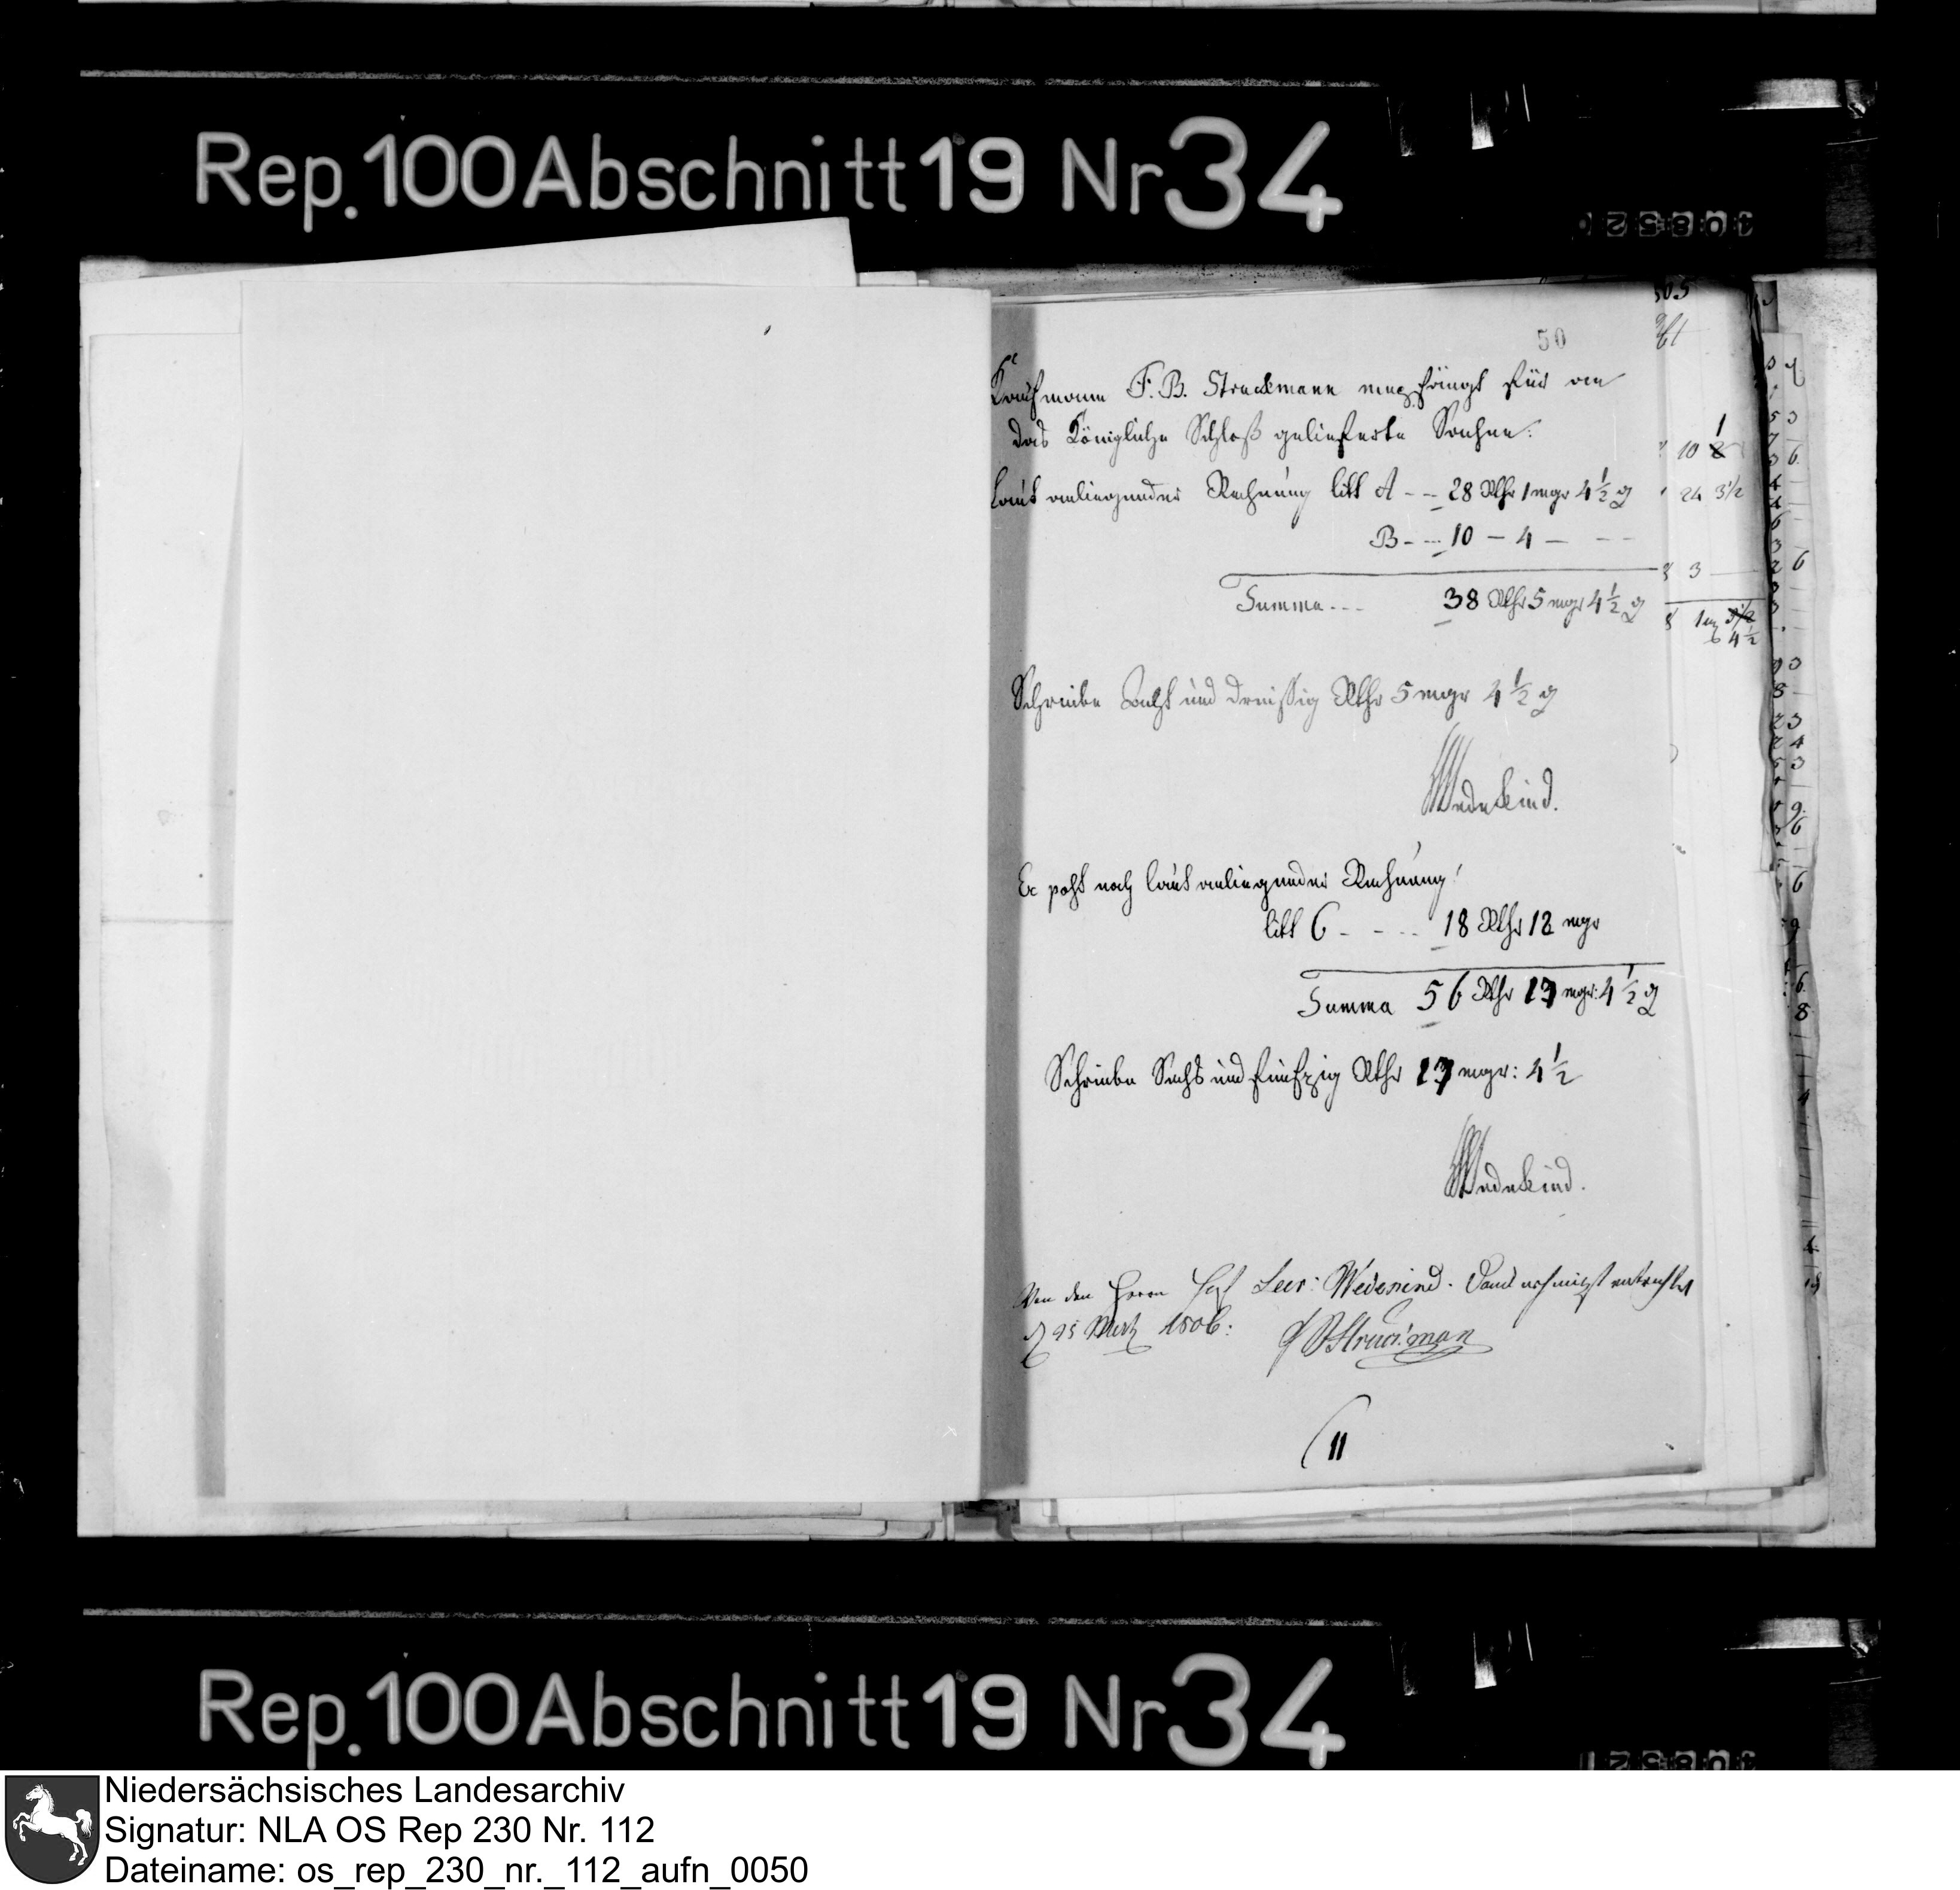 Rep. 100 Abschnitt 19 Nr 34
50
Kaufmann F. B. Struckmann empfängt für an
das Königliche Schloß gelieferte Sachen:
laut anliegender Rechnung litt A - - 28 Rthr 1 mgr 4 1/2 ₰
B - - - 10 - 4 - - -
Summa - - - 38 Rthr 5 mgr 4 1/2 ₰
Schreibe Acht und dreissig Rthr 5 mgr 4 1/2 ₰
Wedekind.
noch laut anliegender Rechnung
litt C - - - - 18 Rthr 12 mgr
Summa 56 Rthr 17 mgr: 4 1/2 ₰
Schreibe Sechs und funfzig Rthr 17 mgr: 4 1/2
Wedekind.
Von den Herrn Wedekind.
1806: Struckman
11
10 1
24 3 1/2
3
4 1/2
Rep. 100 Abschnitt 19 Nr 34
Niedersächsisches Landesarchiv
Signatur: NLA OS Rep 230 Nr. 112
Dateiname: os_rep_230_nr._112_aufn_0050